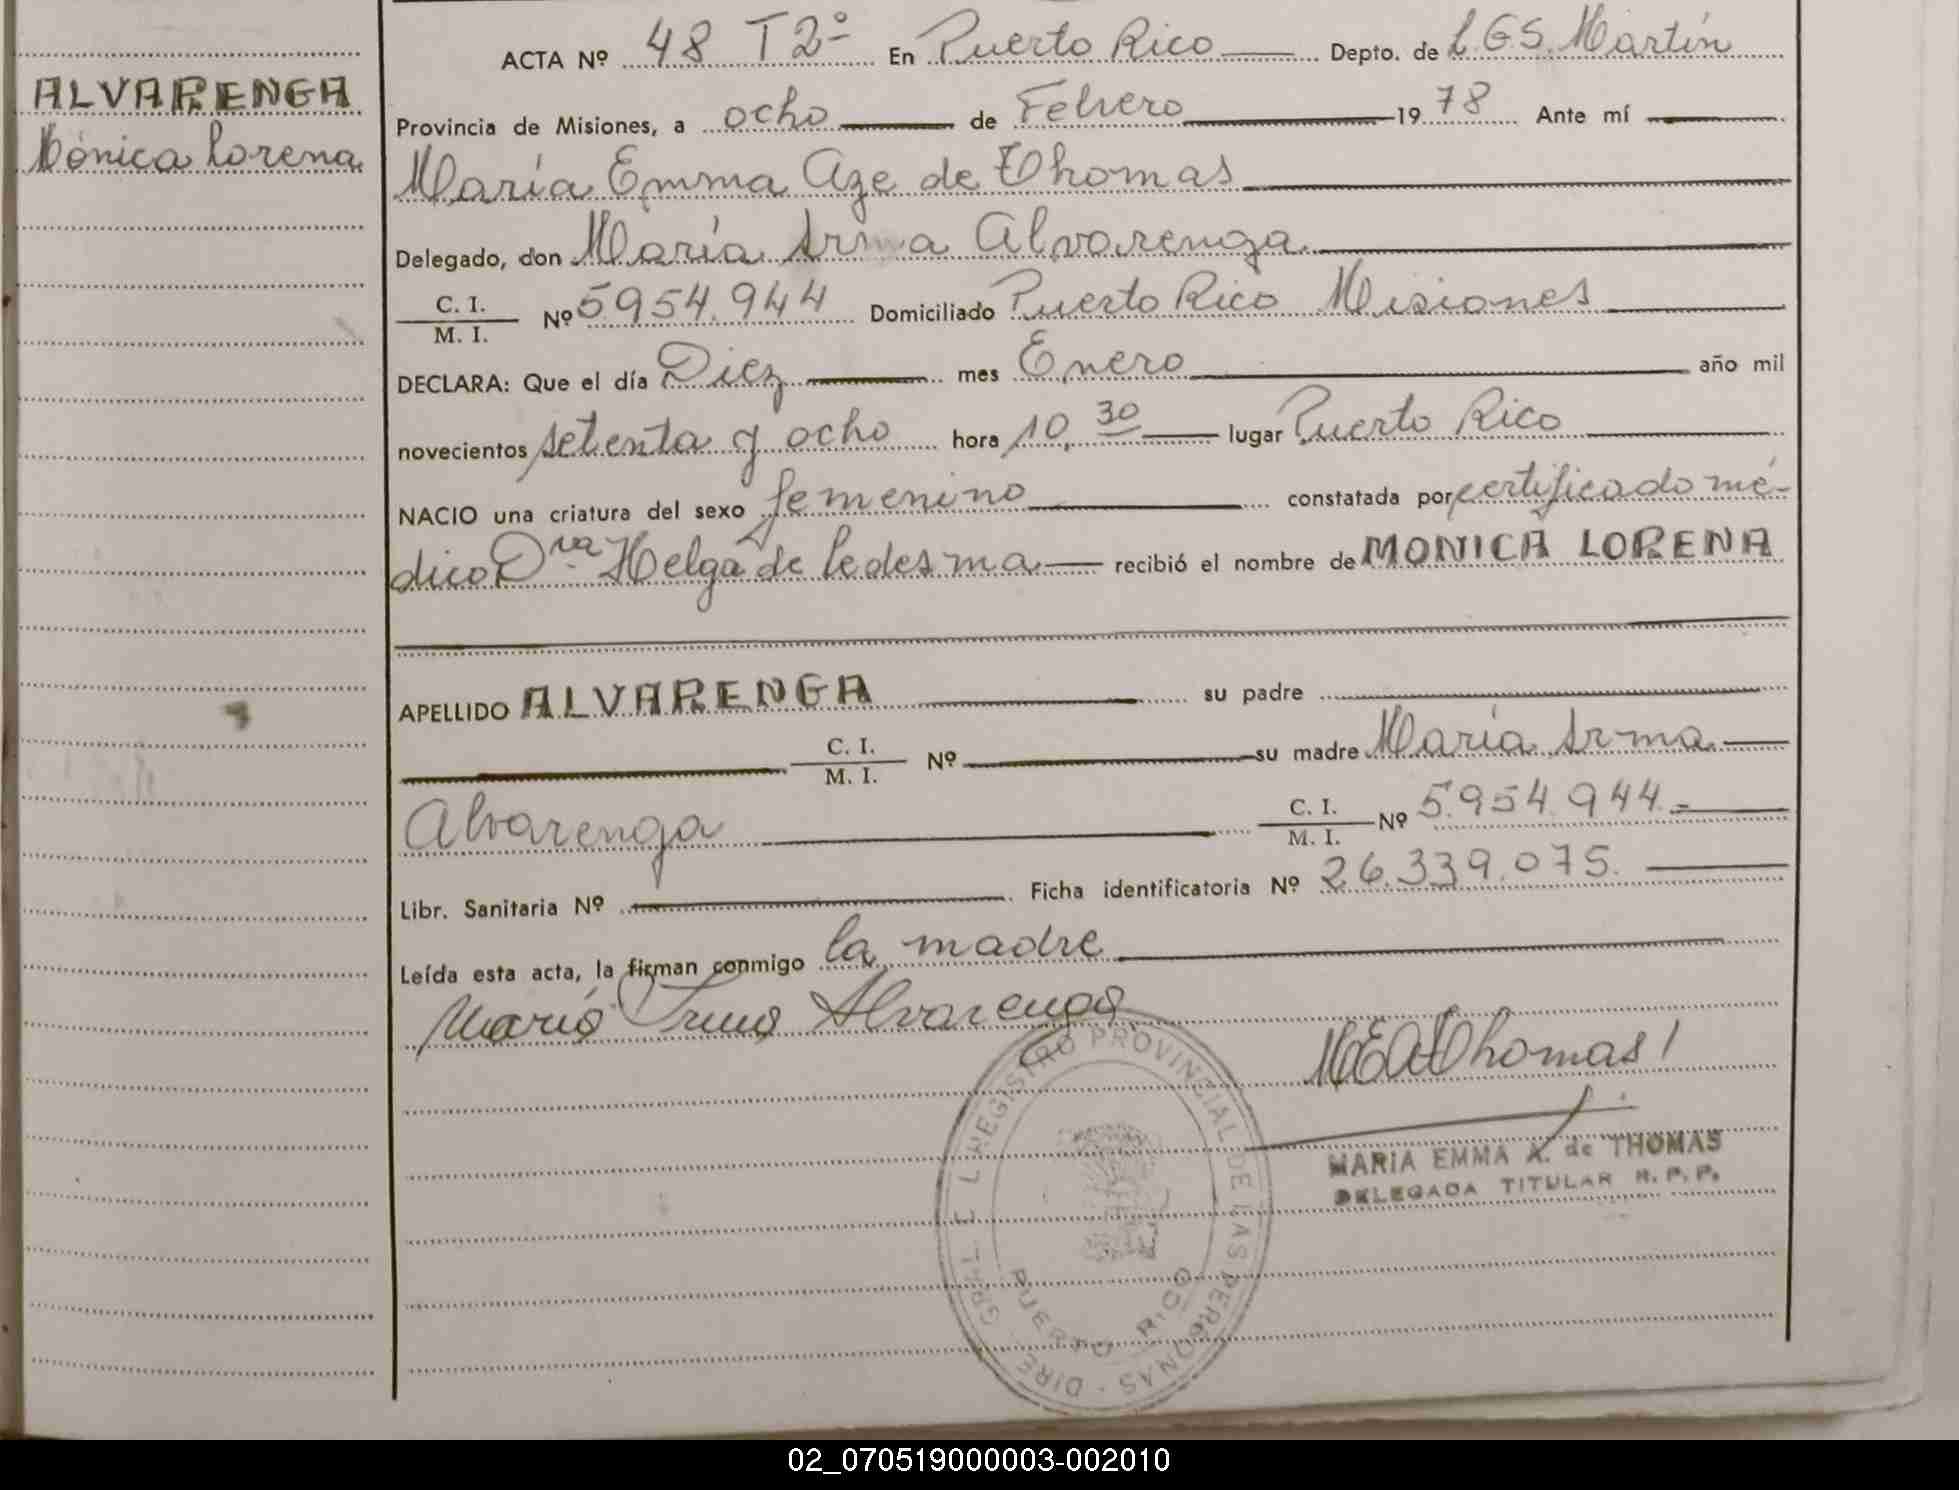 ALVARENGA
Mónica Lorena
ACTA Nº 48 T2º En Puerto Rico Depto. de L.G.S. Martín
Provincia de Misiones, a ocho de Febrero 1978 Ante mí
María Emma Aze de Thomas
Delegado, don María Irma Alvarenga
C. I.
M. I. Nº 5954.944 Domiciliado Puerto Rico Misiones
DECLARA: Que el día Diez mes Enero año mil
novecientos setenta y ocho hora 10,30 lugar Puerto Rico
NACIO una criatura del sexo femenino constatada por certificado mé-
dico Dra. Helga de Ledesma recibió el nombre de MONICA LORENA
APELLIDO ALVARENGA su padre
C. I.
M. I. Nº su madre María Irma
Alvarenga C. I.
M. I. Nº 5.954.944.-
Libr. Sanitaria Nº Ficha identificatoria Nº 26.339.075.
Leída esta acta, la firman conmigo la madre
María Irma Alvarenga
MEAThomas
MARIA EMMA A. de THOMAS
DELEGADA TITULAR R. P. P.
DIRE. GRAL. E L REGISTRO PROVINCIAL DE LAS PERSONAS
PUERTO RICO
02_070519000003-002010